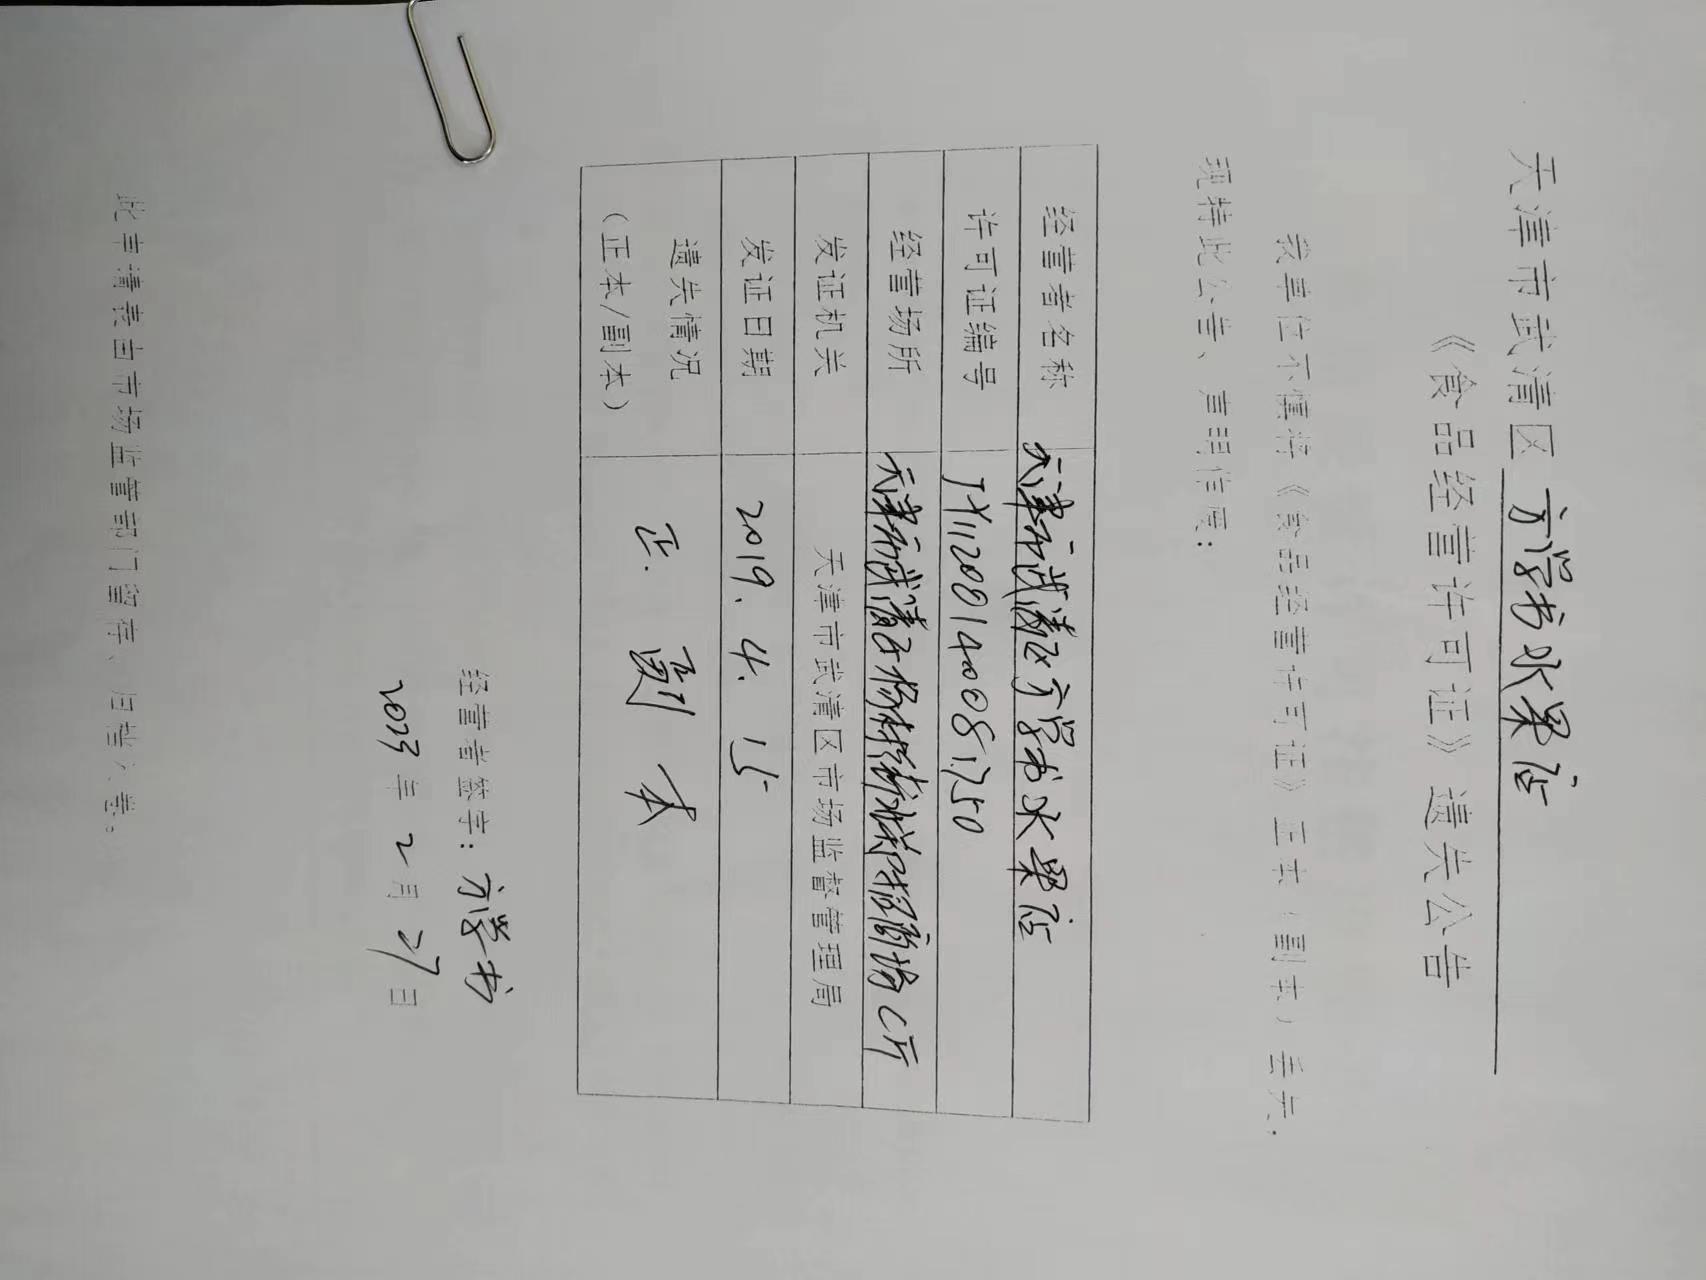 天津市武清区方学书水果店
《食品经营许可证》遗失公告
我单位不慎将《食品经营许可证》正本（副本）丢失，
现持此公告、声明作废：
经营者名称 天津市武清区方学书水果店
许可证编号 JY11200140081750
经营场所 天津市武清区杨村 C厅
发证机关 天津市武清区市场监督管理局
发证日期 2019.4.15
遗失情况
（正本/副本） 正.副本
经营者签字：方学书
2023年2月27日
此申请表由市场监管部门留存、归档入卷。